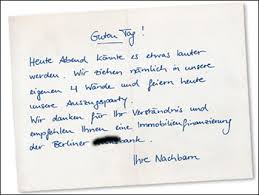 Guten Tag!
Heute Abend könnte es etwas lauter
werden. Wir ziehen nämlich in unsere
eigenen 4 Wände und feiern heute
unsere Auszugsparty.
Wir danken für Ihr Verständnis und
empfehlen Ihnen eine Immobilienfinanzierung
der Berliner bank.
Ihre Nachbarn